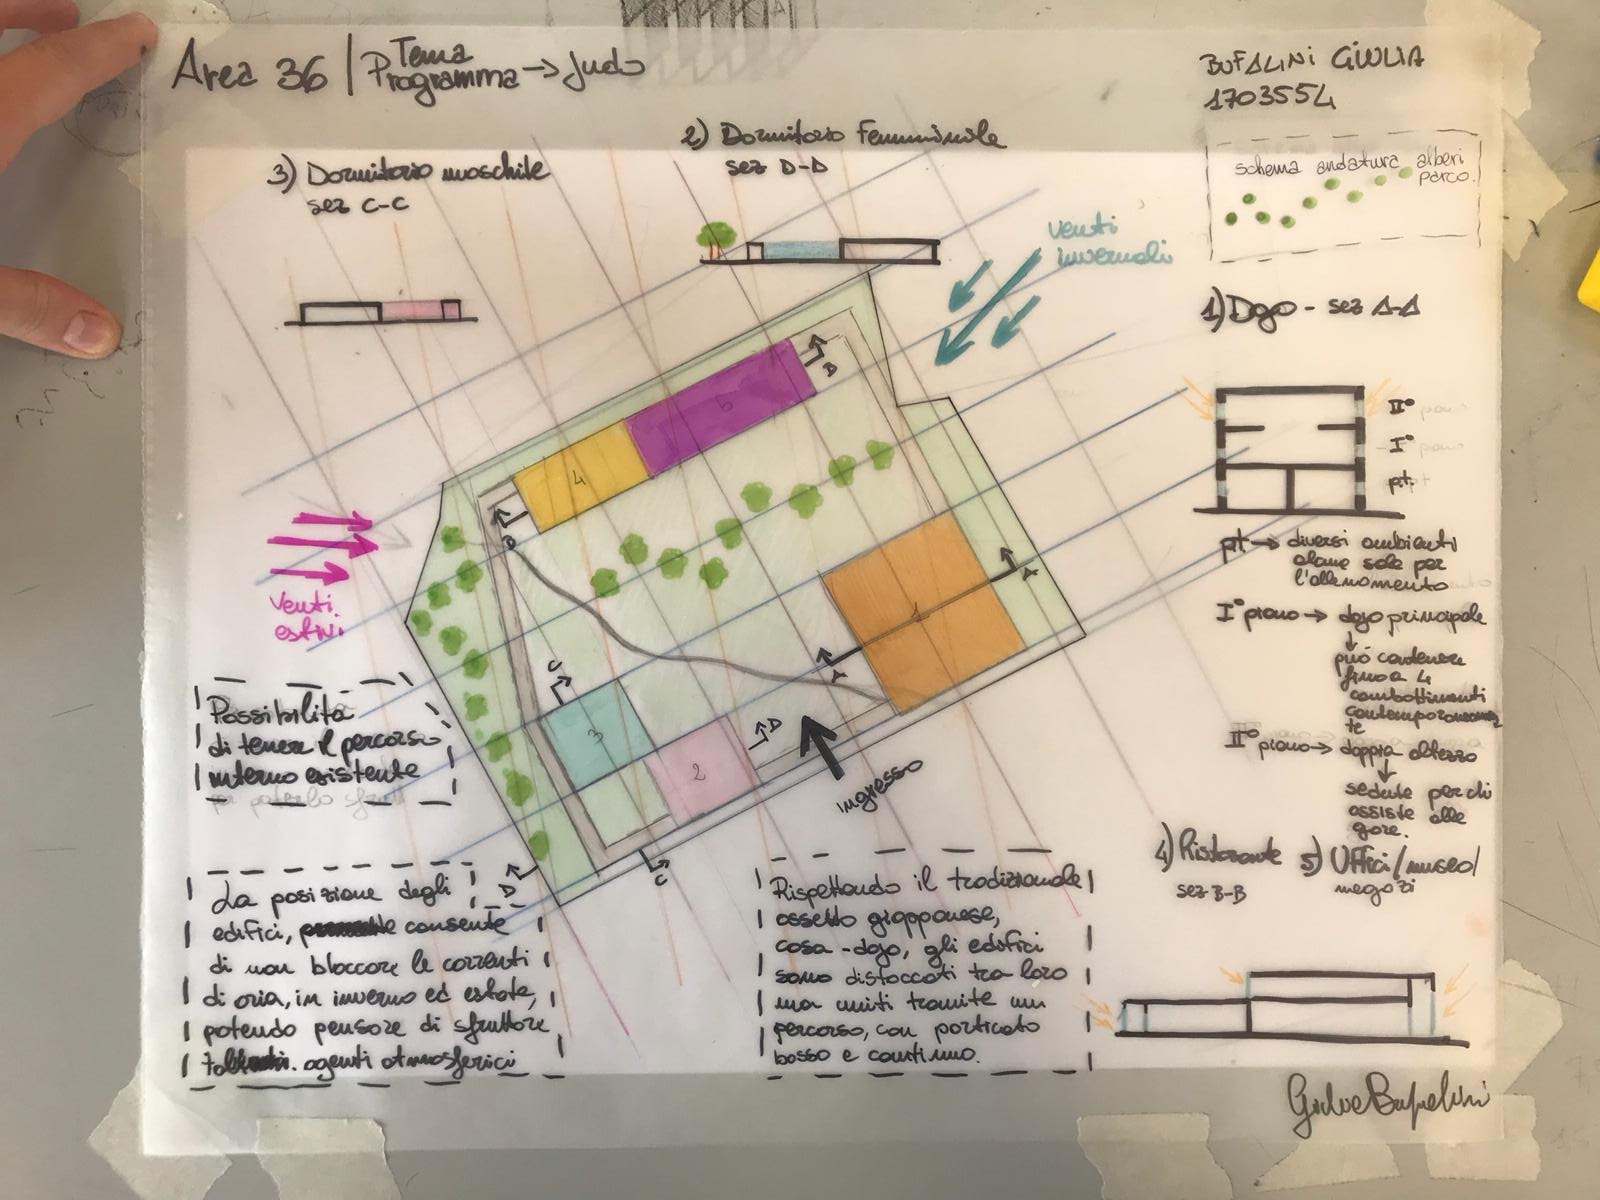 Area 36 | Tema
Programma → Judo
BUFALINI GIULIA
1703554
3) Dormitorio maschile
sez C-C
2) Dormitorio Femminile
sez D-D
schema andatura alberi
parco.
venti
invernali
1) Dojo - sez A-A
II°
I°
pt.
pt → diversi ambienti
alcune sale per
l'allenamento
I° piano → dojo principale
↓
può contenere
fino a 4
combattimenti
contemporaneamen
te
II° piano → doppia altezza
↓
sedute per chi
assiste alle
gare.
4) Ristorante
sez B-B
5) Uffici/museo/
negozi
venti
estivi
5
B
4
B
1
A
A
C
3
2
D
ingresso
D
C
Possibilità
di tenere il percorso
interno esistente
La posizione degli
edifici, consente
di non bloccare le correnti
di aria, in inverno ed estate,
potendo pensare di sfruttare
tali agenti atmosferici
Rispettando il tradizionale
assetto giapponese,
casa-dojo, gli edifici
sono distaccati tra loro
ma uniti tramite un
percorso, con porticato
basso e continuo.
Giulia Bufalini